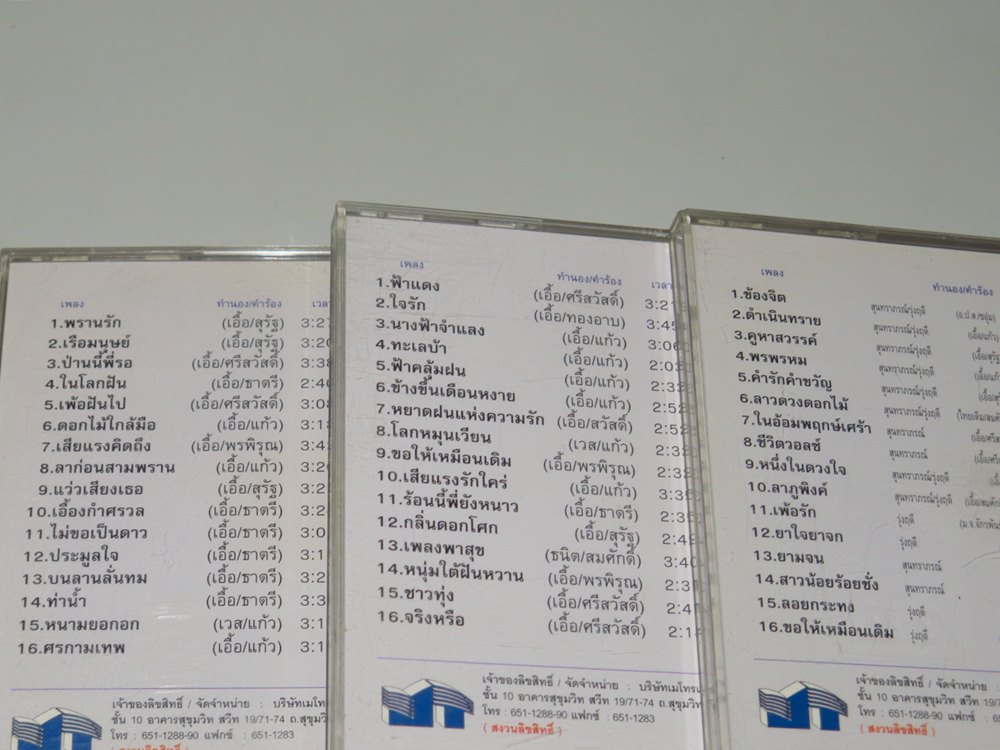 เพลง ทำนอง/คำร้อง
1.พรานรัก (เอื้อ/สุรัฐ)
2.เรือมนุษย์ (เอื้อ/สุรัฐ)
3.ป่านนี้พี่รอ (เอื้อ/ศรีสวัสดิ์)
4.ในโลกฝัน (เอื้อ/ธาตรี)
5.เพ้อฝันไป (เอื้อ/ศรีสวัสดิ์)
6.ดอกไม้ใกล้มือ (เอื้อ/แก้ว)
7.เสียแรงคิดถึง (เอื้อ/พรพิรุณ)
8.ลาก่อนสามพราน (เอื้อ/แก้ว)
9.แว่วเสียงเธอ (เอื้อ/สุรัฐ)
10.เอื้องกำศรวล (เอื้อ/ธาตรี)
11.ไม่ขอเป็นดาว (เอื้อ/ธาตรี)
12.ประมูลใจ (เอื้อ/ธาตรี)
13.บนลานลั่นทม (เอื้อ/ธาตรี)
14.ท่าน้ำ (เอื้อ/ธาตรี)
15.หนามยอกอก (เวส/แก้ว)
16.ศรกามเทพ (เอื้อ/แก้ว)
เจ้าของลิขสิทธิ์ / จัดจำหน่าย : บริษัทเมโท
ชั้น 10 อาคารสุขุมวิท สวีท 19/71-74 ถ.สุขุมวิ
โทร : 651-1288-90 แฟกซ์ : 651-1283
เพลง ทำนอง/คำร้อง เวลา
1.ฟ้าแดง (เอื้อ/ศรีสวัสดิ์)
2.ใจรัก (เอื้อ/ทองอาบ)
3.นางฟ้าจำแลง (เอื้อ/แก้ว)
4.ทะเลบ้า (เอื้อ/แก้ว)
5.ฟ้าคลุ้มฝน (เอื้อ/แก้ว)
6.ข้างขึ้นเดือนหงาย (เอื้อ/แก้ว)
7.หยาดฝนแห่งความรัก (เอื้อ/สวัสดิ์)
8.โลกหมุนเวียน (เวส/แก้ว)
9.ขอให้เหมือนเดิม (เอื้อ/พรพิรุณ)
10.เสียแรงรักใคร่ (เอื้อ/แก้ว)
11.ร้อนนี้พี่ยังหนาว (เอื้อ/ธาตรี)
12.กลิ่นดอกโศก (เอื้อ/สุรัฐ)
13.เพลงพาสุข (ธนิต/สมศักดิ์)
14.หนุ่มใต้ฝันหวาน (เอื้อ/พรพิรุณ)
15.ชาวทุ่ง (เอื้อ/ศรีสวัสดิ์)
16.จริงหรือ (เอื้อ/ศรีสวัสดิ์)
เจ้าของลิขสิทธิ์ / จัดจำหน่าย : บริษัทเมโทร
ชั้น 10 อาคารสุขุมวิท สวีท 19/71-74 ถ.สุขุมวิ
โทร : 651-1288-90 แฟกซ์ : 651-1283
( สงวนลิขสิทธิ์ )
เพลง ทำนอง/คำร้อง
1.ช้องจิต สุนทราภรณ์/รุ่งฤดี
2.ดำเนินทราย สุนทราภรณ์/รุ่งฤดี (เอื้อ/แก้ว)
3.คูหาสวรรค์ สุนทราภรณ์/รุ่งฤดี
4.พรพรหม สุนทราภรณ์/รุ่งฤดี
5.คำรักคำขวัญ สุนทราภรณ์/รุ่งฤดี
6.ลาวดวงดอกไม้ สุนทราภรณ์/รุ่งฤดี
7.ในอ้อมพฤกษ์เศร้า สุนทราภรณ์
8.ชีวิตวอลซ์ สุนทราภรณ์
9.หนึ่งในดวงใจ สุนทราภรณ์/รุ่งฤดี
10.ลาภูพิงค์ สุนทราภรณ์/รุ่งฤดี
11.เพ้อรัก รุ่งฤดี
12.ยาใจยาจก รุ่งฤดี
13.ยามจน สุนทราภรณ์
14.สาวน้อยร้อยชั่ง สุนทราภรณ์
15.ลอยกระทง รุ่งฤดี
16.ขอให้เหมือนเดิม รุ่งฤดี
เจ้าของลิขสิทธิ์ / จัดจำหน่าย
ชั้น 10 อาคารสุขุมวิท สวีท 19/71-74
โทร : 651-1288-90 แฟกซ์
( สงวนลิขสิทธิ์ )